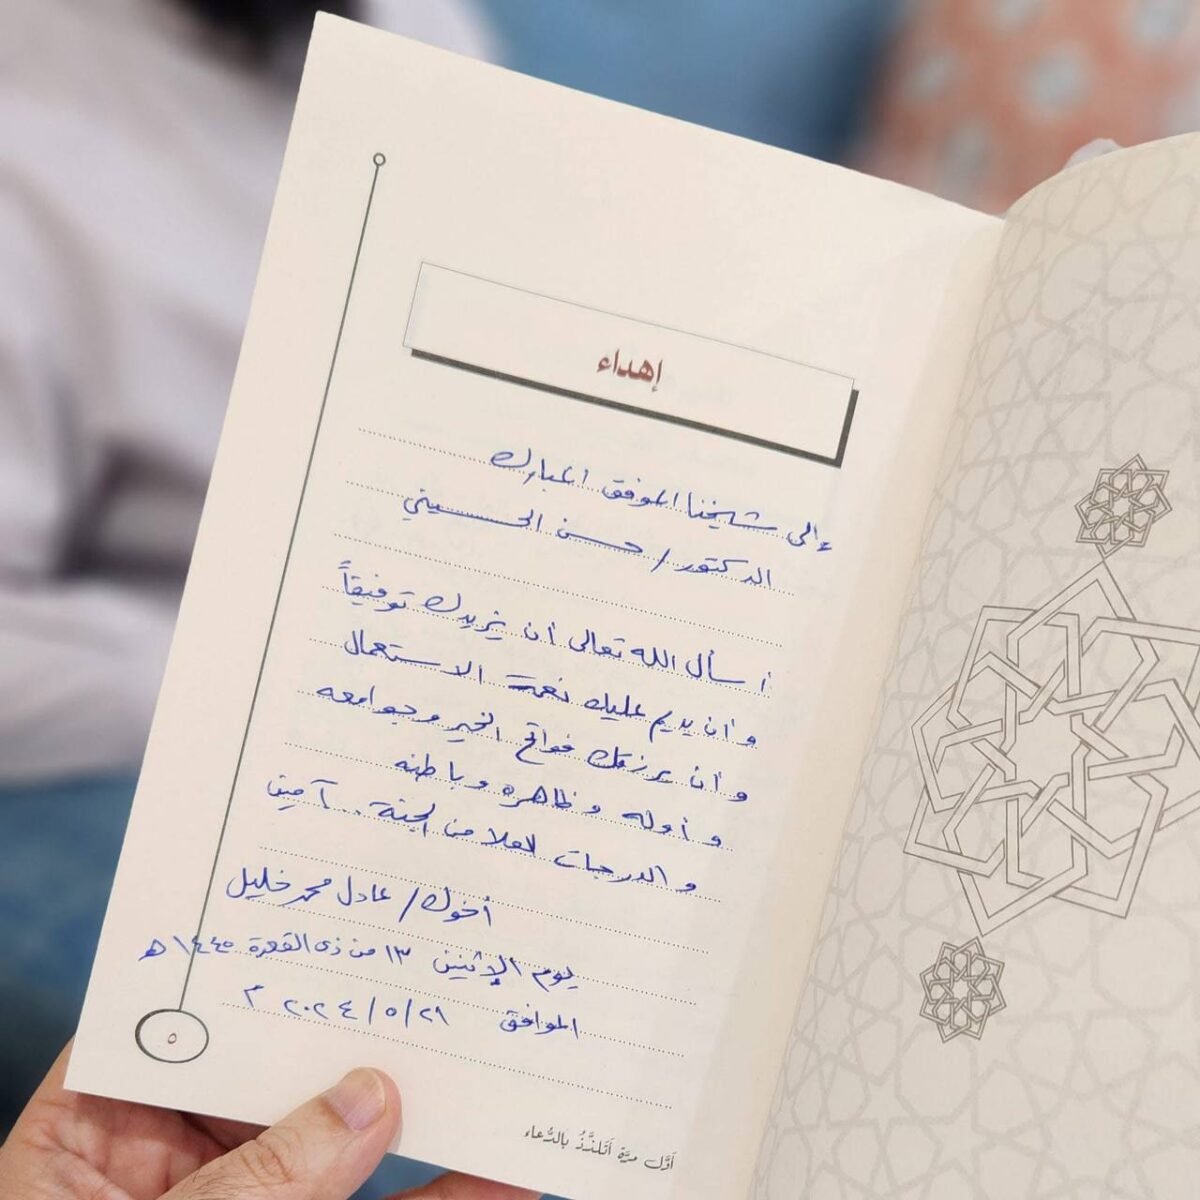 إهداء
إلى شيخنا الموفق المبارك
الدكتور / حسن الحسيني
أسأل الله تعالى أن يزيدك توفيقاً
وأن يديم عليك نعمة الاستعمال
وأن يرزقك فواتح الخير وجوامعه
وأوله وظاهره وباطنه
والدرجات العلا من الجنة .. آمين
أخوك / عادل محمد خليل
يوم الإثنين ١٣ من ذي القعدة ١٤٤٥ هـ
الموافق ٢١ / ٥ / ٢٠٢٤ م
٥
أَوَّل مرَّة أَتَلَذَّذُ بِالدُّعاء